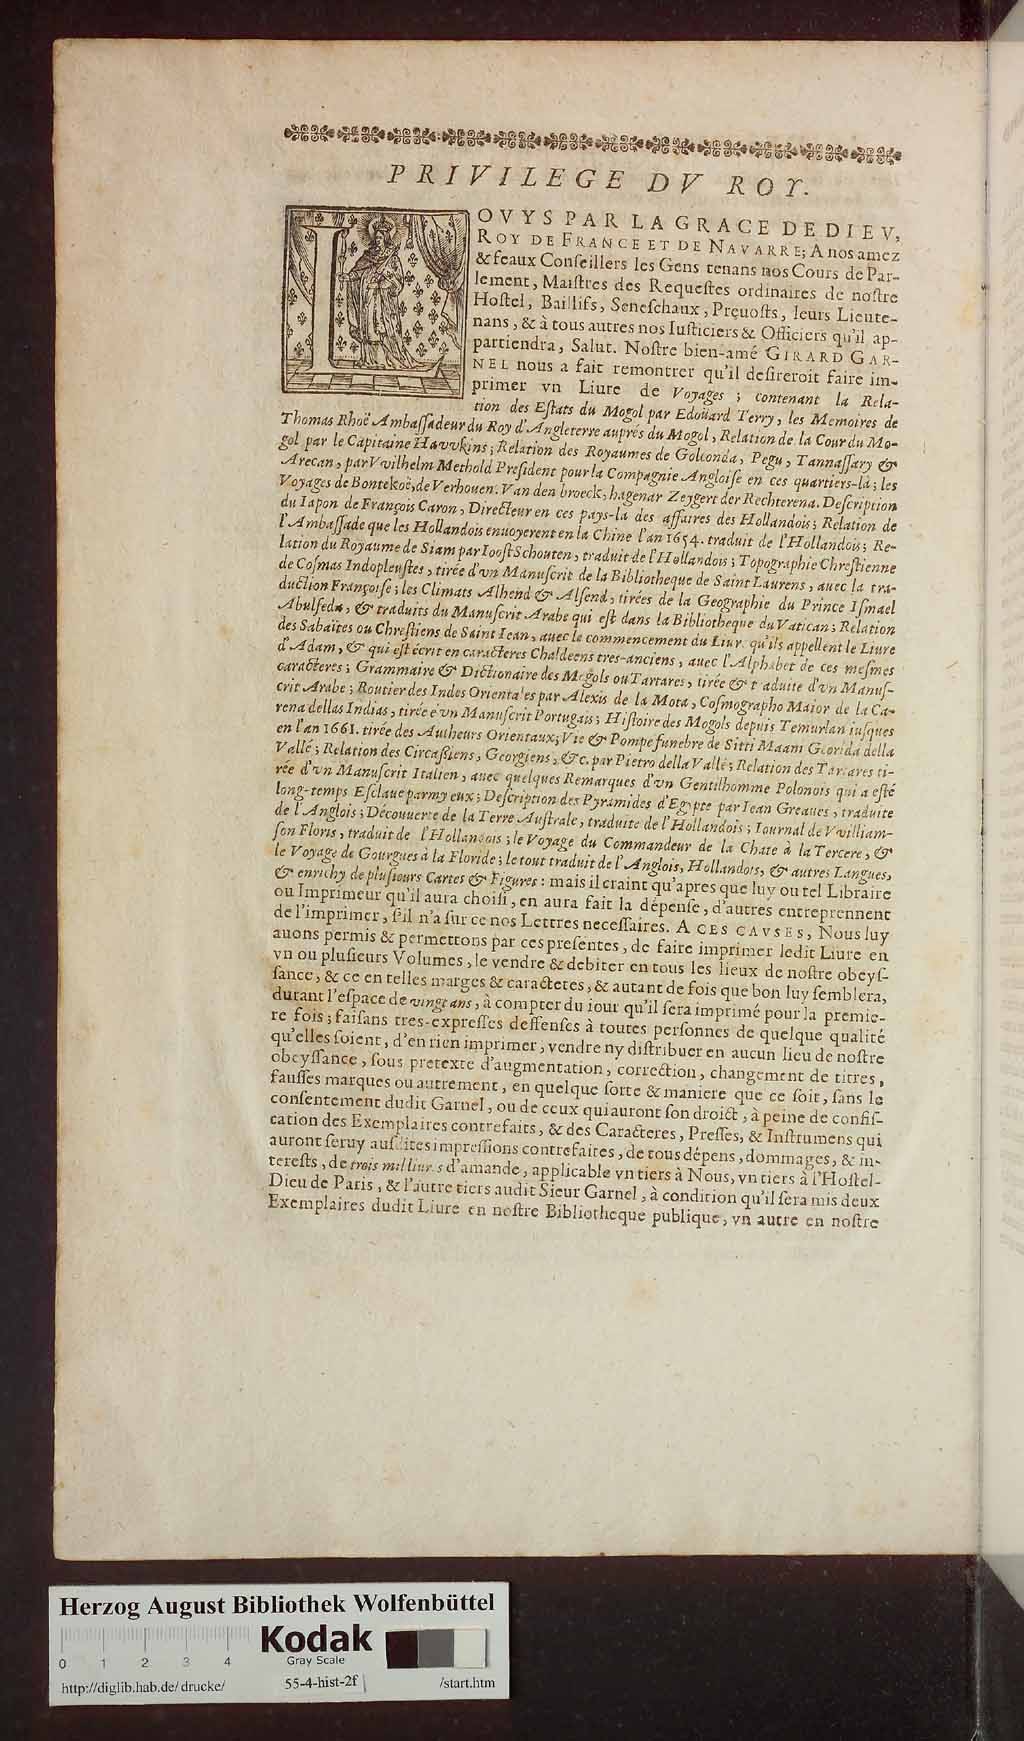 PRIVILEGE DV ROY.
LOVYS PAR LA GRACE DE DIEV,
ROY DE FRANCE ET DE NAVARRE; A nos amez
& feaux Conſeillers les Gens tenans nos Cours de Par-
lement, Maiſtres des Requeſtes ordinaires de noſtre
Hoſtel, Baillifs, Seneſchaux, Preuoſts, leurs Lieute-
nans, & à tous autres nos Iuſticiers & Officiers qu'il ap-
partiendra, Salut. Noſtre bien-amé GIRARD GAR-
NEL nous a fait remontrer qu'il deſireroit faire im-
primer vn Liure de Voyages; contenant la Rela-
tion des Eſtats du Mogol par Edoüard Terry, les Memoires de
Thomas Rhoë Ambaſſadeur du Roy d'Angleterre auprés du Mogol, Relation de la Cour du Mo-
gol par le Capitaine Havvkins; Relation des Royaumes de Golconda, Pegu, Tannaſſary &
Arecan, par VVilhelm Methold Preſident pour la Compagnie Angloiſe en ces quartiers-là; les
Voyages de Bontekoë, de Verhouen. Van den broeck, hagenar Zeygert der Rechterena. Deſcription
du Iapon de François Caron, Directeur en ces pays-là des affaires des Hollandois; Relation de
l'Ambaſſade que les Hollandois enuoyerent en la Chine l'an 1654. traduit de l'Hollandois; Re-
lation du Royaume de Siam par Iooſt Schouten, traduit de l'Hollandois; Topographie Chreſtienne
de Coſmas Indopleuſtes, tirée d'vn Manuſcrit de la Bibliotheque de Saint Laurens, auec la tra-
duction Françoiſe; les Climats Alhend & Alſend, tirées de la Geographie du Prince Iſmael
Abulfeda, & traduits du Manuſcrit Arabe qui eſt dans la Bibliotheque du Vatican; Relation
des Sabaïtes ou Chreſtiens de Saint Iean, auec le commencement du Liur. qu'ils appellent le Liure
d'Adam, & qui eſt écrit en caracteres Chaldeens tres-anciens, auec l'Alphabet de ces meſmes
caracteres; Grammaire & Dictionaire des Mogols ou Tartares, tirée & traduite d'vn Manuſ-
crit Arabe; Routier des Indes Orientales par Alexis de la Mota, Coſmographo Maior de la Ca-
rena dellas Indias, tirée d'vn Manuſcrit Portugais; Hiſtoire des Mogols depuis Temurlan iuſques
en l'an 1661. tirée des Autheurs Orientaux; Vie & Pompe funebre de Sitti Maani Gioerida della
Vallé; Relation des Circaſſiens, Georgiens, &c. par Pietro della Vallé; Relation des Tartares ti-
rée d'vn Manuſcrit Italien, auec quelques Remarques d'vn Gentilhomme Polonois qui a eſté
long-temps Eſclaue parmy eux; Deſcription des Pyramides d'Egypte par Iean Greaues, traduite
de l'Anglois; Découuerte de la Terre Auſtrale, traduite de l'Hollandois; Iournal de VVilliam-
ſon Floris, traduit de l'Hollandois; le Voyage du Commandeur de la Chate à la Tercere, &
le Voyage de Gourgues à la Floride; le tout traduit de l'Anglois, Hollandois, & autres Langues,
& enrichy de pluſieurs Cartes & Figures: mais il craint qu'apres que luy ou tel Libraire
ou Imprimeur qu'il aura choiſi, en aura fait la dépenſe, d'autres entreprennent
de l'imprimer, s'il n'a ſur ce nos Lettres neceſſaires. A CES CAVSES, Nous luy
auons permis & permettons par ces preſentes, de faire imprimer ledit Liure en
vn ou pluſieurs Volumes, le vendre & debiter en tous les lieux de noſtre obeyſ-
ſance, & ce en telles marges & caracteres, & autant de fois que bon luy ſemblera,
durant l'eſpace de vingt ans, à compter du iour qu'il ſera imprimé pour la premie-
re fois; faiſans tres-expreſſes deffenſes à toutes perſonnes de quelque qualité
qu'elles ſoient, d'en rien imprimer, vendre ny diſtribuer en aucun lieu de noſtre
obeyſſance, ſous pretexte d'augmentation, correction, changement de titres,
fauſſes marques ou autrement, en quelque ſorte & maniere que ce ſoit, ſans le
conſentement dudit Garnel, ou de ceux qui auront ſon droict, à peine de confiſ-
cation des Exemplaires contrefaits, & des Caracteres, Preſſes, & Inſtrumens qui
auront ſeruy auſdites impreſſions contrefaites, de tous dépens, dommages, & in-
tereſts, de trois mil liures d'amande, applicable vn tiers à Nous, vn tiers à l'Hoſtel-
Dieu de Paris, & l'autre tiers audit Sieur Garnel, à condition qu'il ſera mis deux
Exemplaires dudit Liure en noſtre Bibliotheque publique, vn autre en noſtre
Herzog August Bibliothek Wolfenbüttel
Kodak
Gray Scale
0 1 2 3 4
http://diglib.hab.de/drucke/ 55-4-hist-2f /start.htm